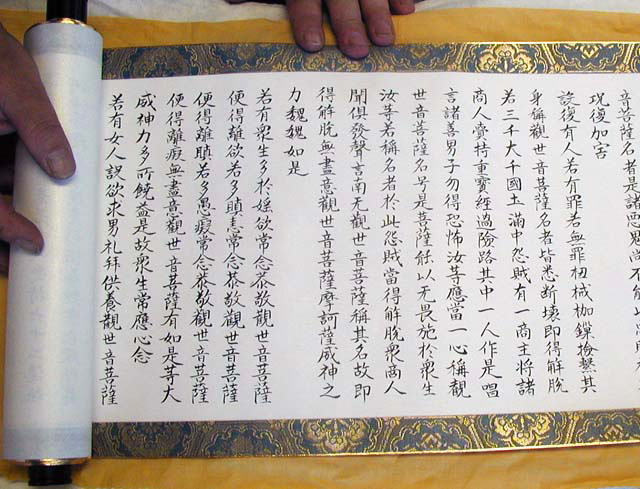 音菩薩名者是諸惡鬼尚不能以
况復加害
設復有人若有罪若無罪杻械枷鏁撿繫其
身稱觀世音菩薩名者皆悉断壞即得解脫
若三千大千國土滿中怨賊有一商主將諸
商人賫持重寶經過險路其中一人作是唱
言諸善男子勿得恐怖汝等應當一心稱觀
世音菩薩名号是菩薩能以无畏施於衆生
汝等若稱名者於此怨賊當得解脫衆商人
聞俱發聲言南无觀世音菩薩稱其名故即
得解脫無盡意觀世音菩薩摩訶薩威神之
力巍巍如是
若有衆生多於婬欲常念恭敬觀世音菩薩
便得離欲若多瞋恚常念恭敬觀世音菩薩
便得離瞋若多愚癡常念恭敬觀世音菩薩
便得離癡無盡意觀世音菩薩有如是等大
威神力多所饒益是故衆生常應心念
若有女人設欲求男礼拜供養觀世音菩薩